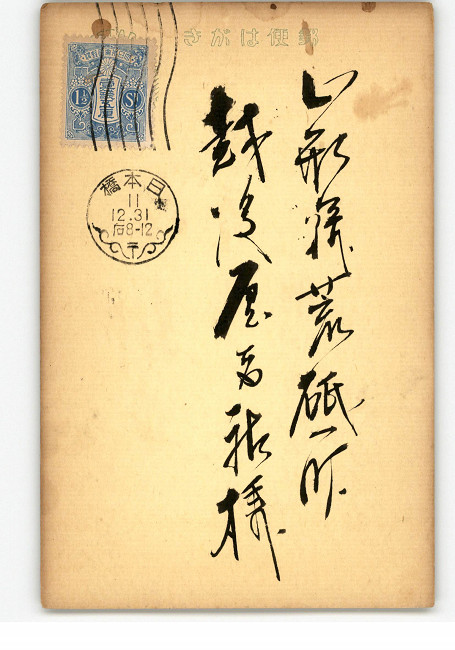 きがは便郵
1½ Sn
日本橋
11
12.31
后8-12
山形縣荒砥町
越後屋高祐様